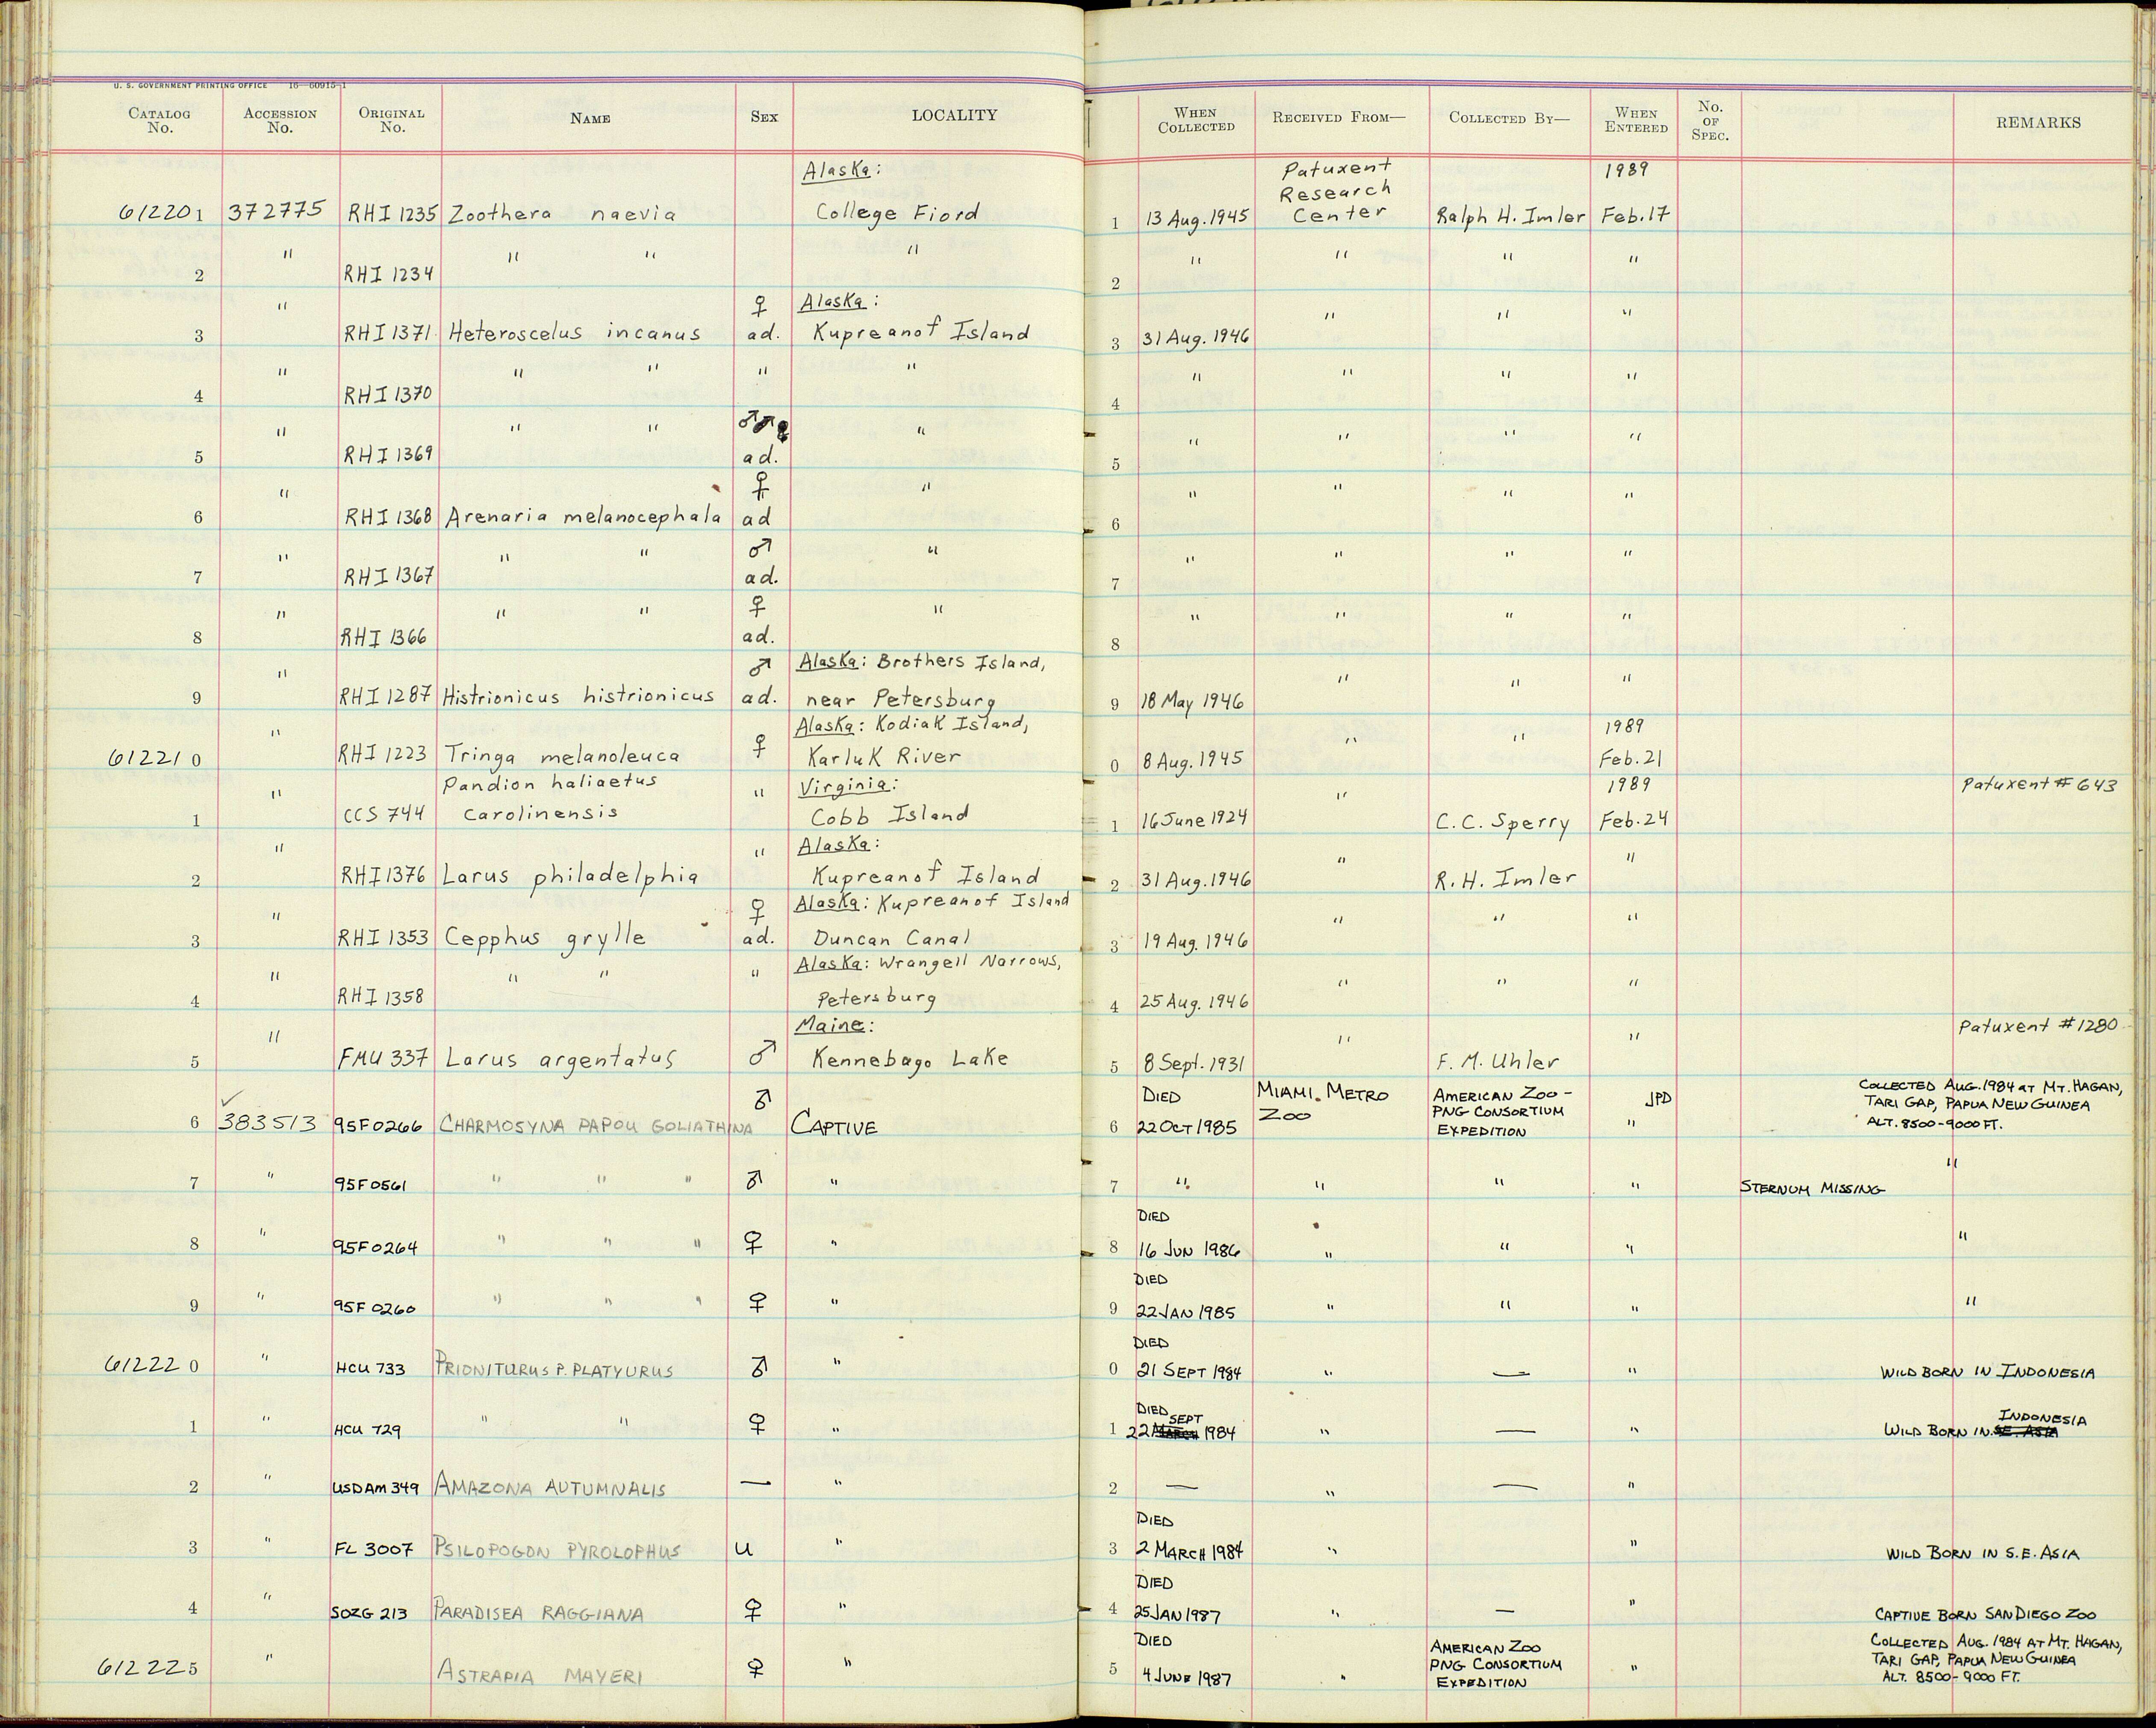 U. S. GOVERNMENT PRINTING OFFICE 16—60915-1
CATALOG No. ACCESSION No. ORIGINAL No. NAME SEX LOCALITY WHEN COLLECTED RECEIVED FROM— COLLECTED BY— WHEN ENTERED No. OF SPEC. REMARKS
Alaska: Patuxent Research 1989
612201 372775 RHI 1235 Zoothera naevia College Fiord 1 13 Aug. 1945 Center Ralph H. Imler Feb. 17
2 " RHI 1234 " " " 2 " " " "
♀ Alaska:
3 " RHI 1371 Heteroscelus incanus ad. Kupreanof Island 3 31 Aug. 1946 " " "
4 " RHI 1370 " " " " 4 " " " "
5 " RHI 1369 " " ad. " 5 " " " "
♀
6 " RHI 1368 Arenaria melanocephala ad " 6 " " " "
♂
7 " RHI 1367 " " ad. " 7 " " " "
♀
8 " RHI 1366 " " ad. " 8 " " " "
♂ Alaska: Brothers Island,
9 " RHI 1287 Histrionicus histrionicus ad. near Petersburg 9 18 May 1946 " " "
Alaska: Kodiak Island, 1989
612210 " RHI 1223 Tringa melanoleuca ♀ Karluk River 0 8 Aug. 1945 " " Feb. 21
Pandion haliaetus " Virginia: 1989 Patuxent # 643
1 " CCS 744 carolinensis Cobb Island 1 16 June 1924 " C. C. Sperry Feb. 24
Alaska:
2 " RHI 1376 Larus philadelphia " Kupreanof Island 2 31 Aug. 1946 " R. H. Imler "
♀ Alaska: Kupreanof Island
3 " RHI 1353 Cepphus grylle ad. Duncan Canal 3 19 Aug. 1946 " " "
Alaska: Wrangell Narrows,
4 " RHI 1358 " " " Petersburg 4 25 Aug. 1946 " " "
Maine: Patuxent # 1280
5 " FMU 337 Larus argentatus ♂ Kennebago Lake 5 8 Sept. 1931 " F. M. Uhler "
DIED MIAMI METRO AMERICAN ZOO - JPD COLLECTED AUG. 1984 AT MT. HAGAN,
ZOO PNG CONSORTIUM TARI GAP, PAPUA NEW GUINEA
6 383513 95F0266 CHARMOSYNA PAPOU GOLIATHINA ♂ CAPTIVE 6 22 OCT 1985 EXPEDITION " ALT. 8500-9000 FT.
7 " 95F0561 " " " ♂ " 7 " " " " STERNUM MISSING "
DIED
8 " 95F0264 " " " ♀ " 8 16 JUN 1986 " " " "
DIED
9 " 95F0260 " " " ♀ " 9 22 JAN 1985 " " " "
DIED
612220 " HCU 733 PRIONITURUS P. PLATYURUS ♂ " 0 21 SEPT 1984 " — " WILD BORN IN INDONESIA
DIED SEPT INDONESIA
1 " HCU 729 " " ♀ " 1 22 MARCH 1984 " — " WILD BORN IN S.E. ASIA
2 " USDAM 349 AMAZONA AUTUMNALIS — " 2 — " — "
DIED
3 " FL 3007 PSILOPOGON PYROLOPHUS U " 3 2 MARCH 1984 " " WILD BORN IN S.E. ASIA
DIED
4 " SDZG 213 PARADISEA RAGGIANA ♀ " 4 25 JAN 1987 " — " CAPTIVE BORN SAN DIEGO ZOO
DIED AMERICAN ZOO COLLECTED AUG. 1984 AT MT. HAGAN,
PNG CONSORTIUM TARI GAP, PAPUA NEW GUINEA
612225 " ASTRAPIA MAYERI ♀ " 5 4 JUNE 1987 " EXPEDITION " ALT. 8500-9000 FT.